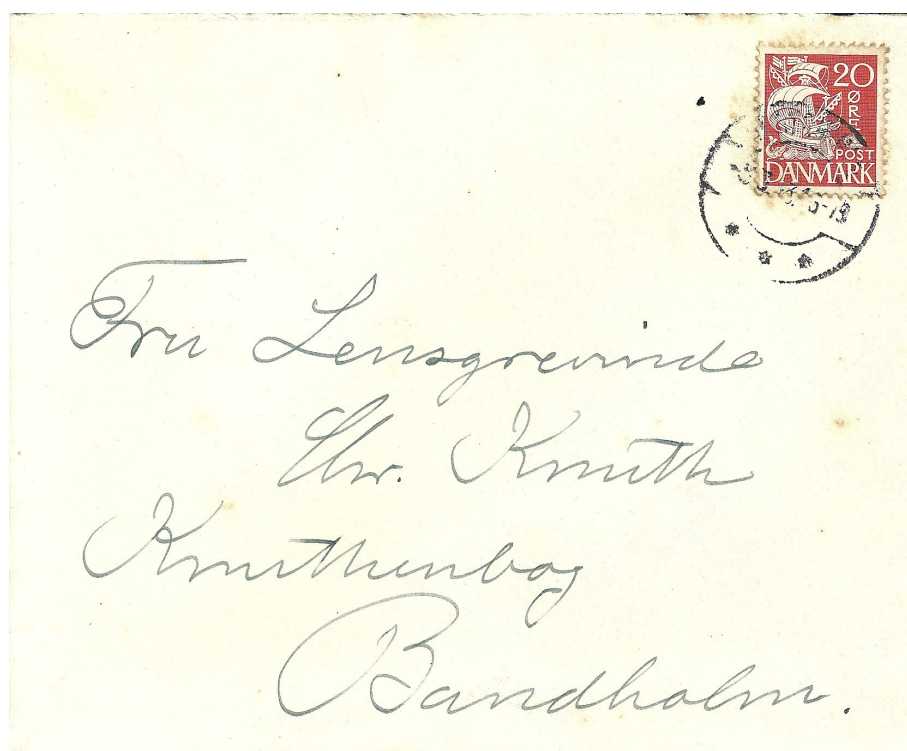 20
ØRE
POST
DANMARK
Fru Lensgrevinde
Chr. Knuth
Knuthenbog
Bandholm.